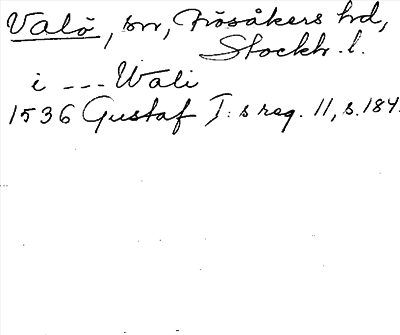 Valö, sn, Frösåkers hd,
Stockh. l.
i --- Wali
1536 Gustaf I:s reg. 11, s. 184.